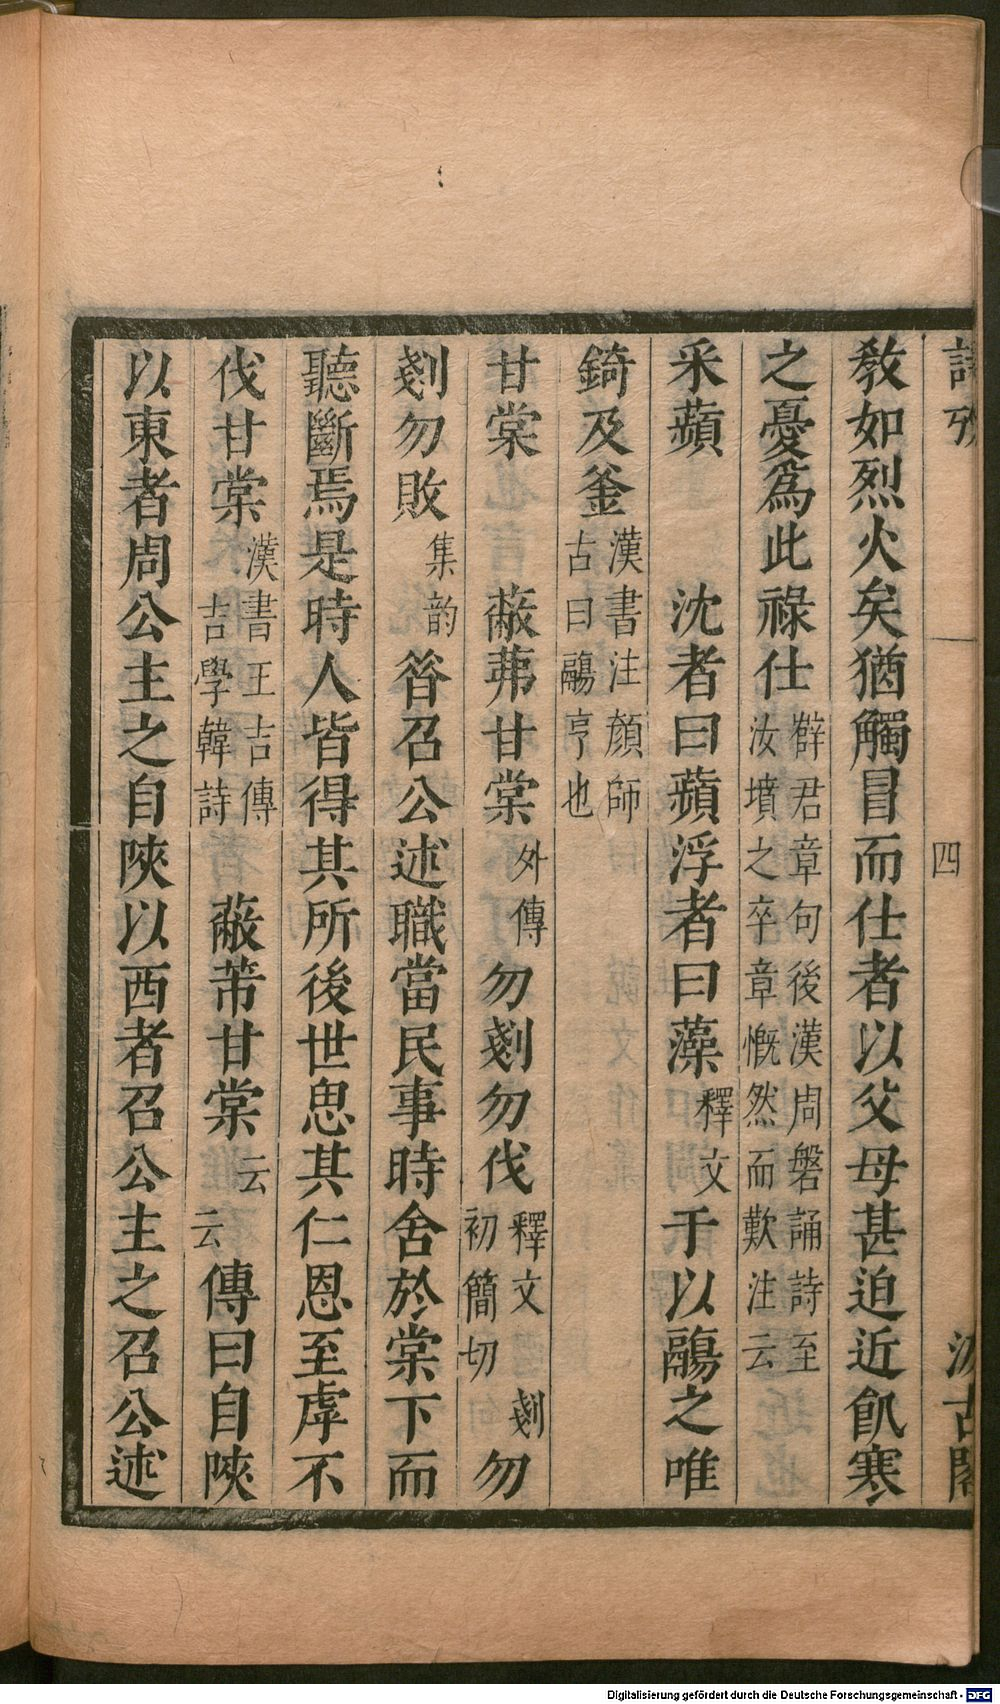 詩攷
四
汲古閣
教如烈火矣猶觸冒而仕者以父母甚迫近飢寒
之憂爲此祿仕薛君章句後漢周磐誦詩至汝墳之卒章慨然而歎注云
采蘋 沈者曰蘋浮者曰藻釋文于以鬺之唯
錡及釜漢書注顏師古曰鬺亨也
甘棠 蔽茀甘棠外傳勿剗勿伐釋文初簡切剗勿
剗勿敗集韵 昝召公述職當民事時舍於棠下而
聽斷焉是時人皆得其所後世思其仁恩至虖不
伐甘棠漢書王吉傳吉學韓詩 蔽芾甘棠云云傳曰自陝
以東者周公主之自陝以西者召公主之召公述
Digitalisierung gefördert durch die Deutsche Forschungsgemeinschaft - DFG